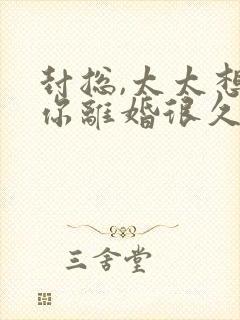 封总,太太想
你離婚很久
三舍堂